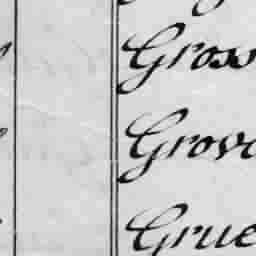 Gross
Grove
Grue